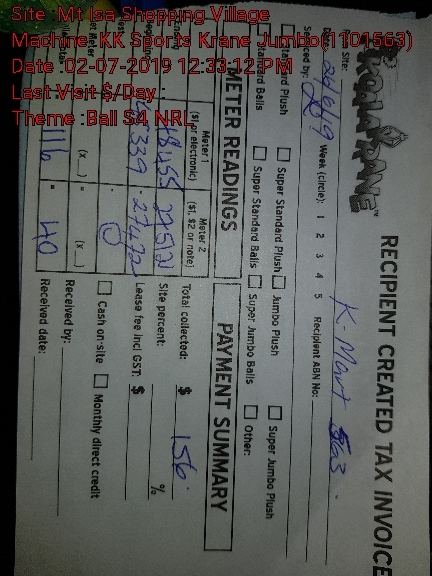 Site : Mt Isa Shopping Village
Machine: KK Sports Krane Jumbo ( 101563)
Date :02-07-2019 12:33:12 PM
Last Visit $/Day :
Theme :Ball S4 NRL
KOALA KRANE
RECIPIENT CREATED TAX INVOICE
Site: K-Mart 563.
Date: 24/6/19 Week (circle): 1 2 3 4 5 Recipient ABN No:
Serviced by:
Standard Plush Super Standard Plush Jumbo Plush Super Jumbo Plush
Standard Balls Super Standard Balls Super Jumbo Balls Other:
METER READINGS
PAYMENT SUMMARY
Meter 1
($1 or electronic)
Meter 2
($1, $2 or note)
Total collected: $ 156.
Site percent: %
Lease fee incl GST: $
Cash on-site Monthly direct credit
Received by:
Received date:
(x )
(x )
116
40